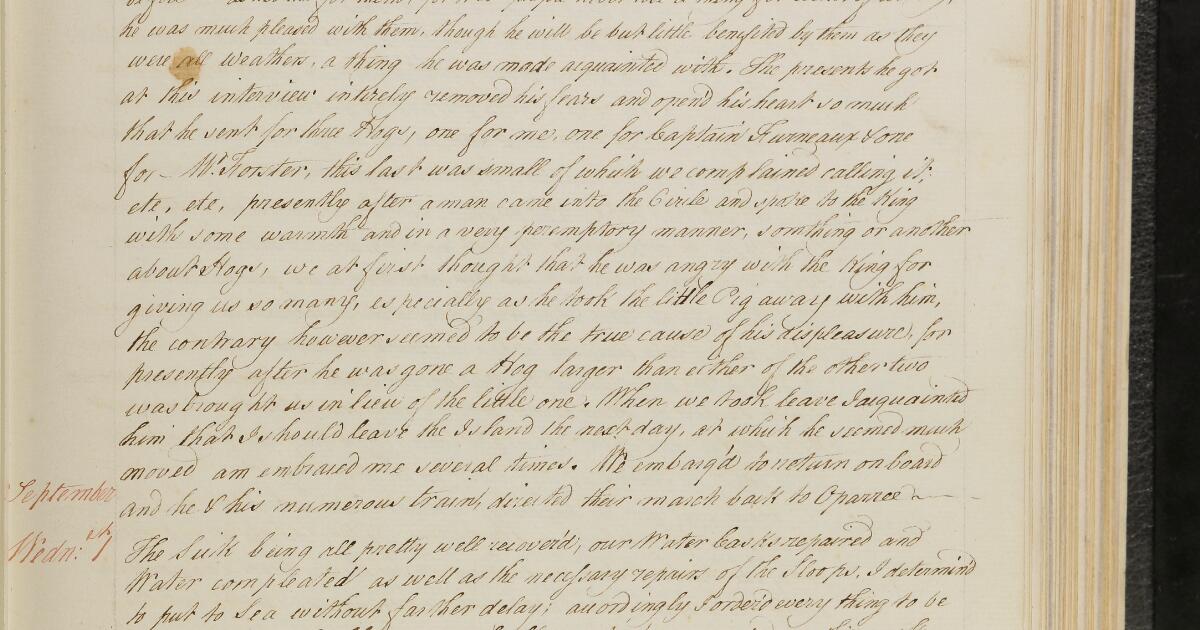 he was much pleased with them, though he will be but little benefited by them as they
were all Weathers, a thing he was made acquainted with. The presents he got
at this interview intirely removed his fears and open'd his heart so much
that he sent for three Hogs, one for me, one for Captain Furneaux & one
for Mr. Forster, this last was small of which we complained calling it,
ete, ete, presently after a man came into the Circle and spoke to the King
with some warmth and in a very peremptory manner, somthing or another
about Hogs, we at first thought that he was angry with the King for
giving us so many, especially as he took the little Pig away with him,
the contrary however seemed to be the true cause of his displeasure, for
presently after he was gone a Hog larger than either of the other two
was brought us in lieu of the little one. When we took leave I acquainted
him that I should leave the Island the next day, at which he seemed much
moved am embraced me several times. We embarq'd to return on board
September
and he & his numerous train, directed their march back to Oparree
Wedn: 1st
The Sick being all pretty well recover'd, our Water Casks repaired and
Water compleated as well as the necessary repairs of the Sloops, I determind
to put to Sea without farther delay; accordingly I order'd every thing to be